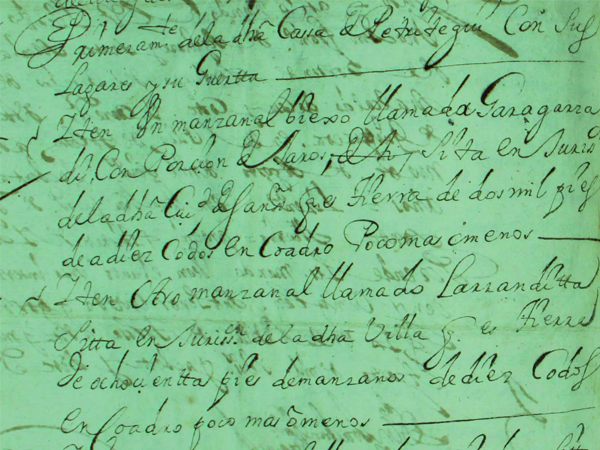 Primeramte de la dha Casa de Petritegui Con sus
Lagares y su Guertta
Yten Un manzanal biexo llamado Garagarza
di, Con Porcion de Xaros, Sita en Juris
de la dha Ciud de San qe es tierra de dos mil pies
de a diez Codos en Cuadro Poco mas o menos
Yten Otro manzanal llamado Larranditta
Sitta en Jurison de la dha Villa qe es tierra
De ochocientta pies de manzanos de diez Codos
en Cuadro poco mas o menos